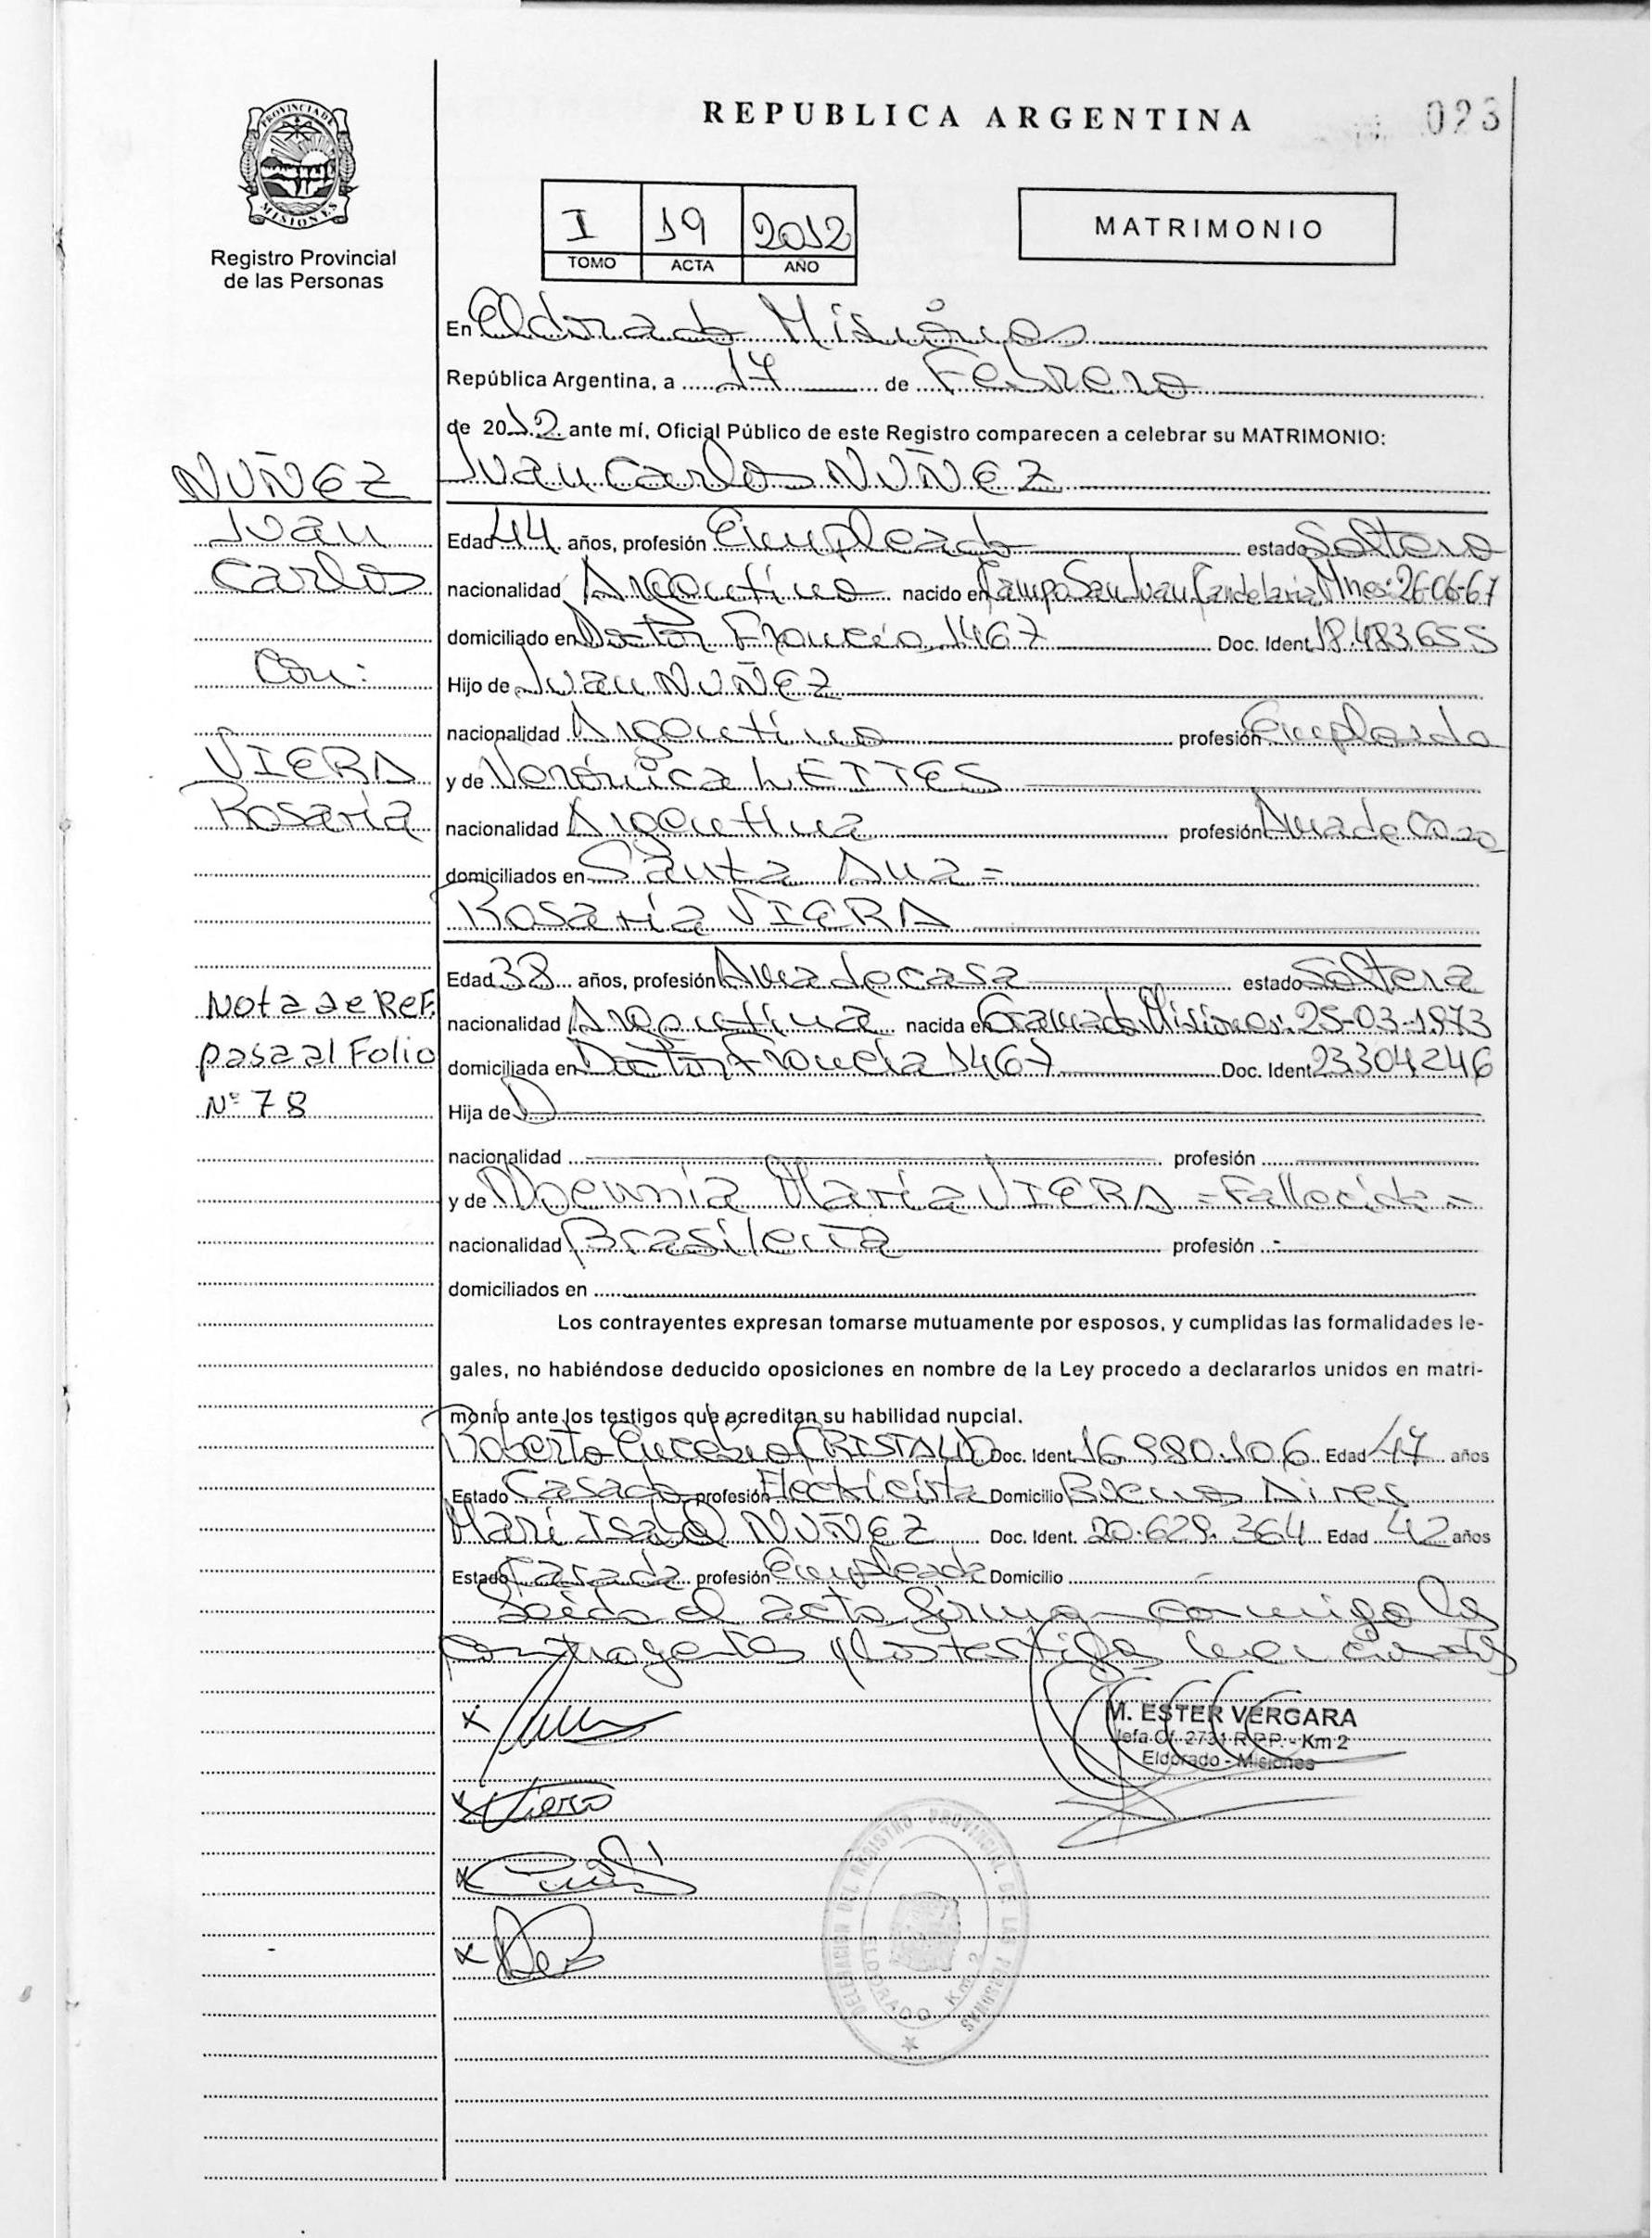 PROVINCIA DE
MISIONES
Registro Provincial
de las Personas
REPUBLICA ARGENTINA
023
I 19 2012
TOMO ACTA AÑO
MATRIMONIO
En Eldorado Misiones
República Argentina, a 17 de Febrero
de 2012 ante mí, Oficial Público de este Registro comparecen a celebrar su MATRIMONIO:
Juan Carlos NUÑEZ
NUÑEZ
Juan
Carlos
Con:
VIERA
Rosaria
Nota de Ref.
pasa al Folio
Nº 78
Edad 44 años, profesión Empleado estado Soltero
nacionalidad Argentino nacido en Campo San Juan Candelaria Mnes: 26-06-67
domiciliado en Doctor Francia 1467 Doc. Ident. 18.483.655
Hijo de Juan NUÑEZ
nacionalidad Argentino profesión Empleado
y de Verónica LEITES
nacionalidad Argentina profesión Ama de Casa
domiciliados en Santa Ana =
Rosaria VIERA
Edad 38 años, profesión Ama de casa estado Soltera
nacionalidad Argentina nacida en Gramado Misiones: 25-03-1973
domiciliada en Doctor Francia 1467 Doc. Ident. 23304246
Hija de
nacionalidad profesión
y de Noemnia María VIERA = Fallecida =
nacionalidad Brasileña profesión -
domiciliados en
Los contrayentes expresan tomarse mutuamente por esposos, y cumplidas las formalidades le-
gales, no habiéndose deducido oposiciones en nombre de la Ley procedo a declararlos unidos en matri-
monio ante los testigos que acreditan su habilidad nupcial.
Roberto Eusebio CRISTALDO Doc. Ident. 16.980.106 Edad 47 años
Estado Casado profesión Electricista Domicilio Buenos Aires
Mari Isabel NUÑEZ Doc. Ident. 20.629.364 Edad 42 años
Estado Casada profesión Empleada Domicilio -
Leído el acta firman conmigo los
contrayentes y los testigos mencionados
M. ESTER VERGARA
Jefa Of. 2731 R.P.P. - Km 2
Eldorado - Misiones
x
x Viera
x
x
DELEGACION DEL REGISTRO PROVINCIAL DE LAS PERSONAS
ELDORADO Km. 2